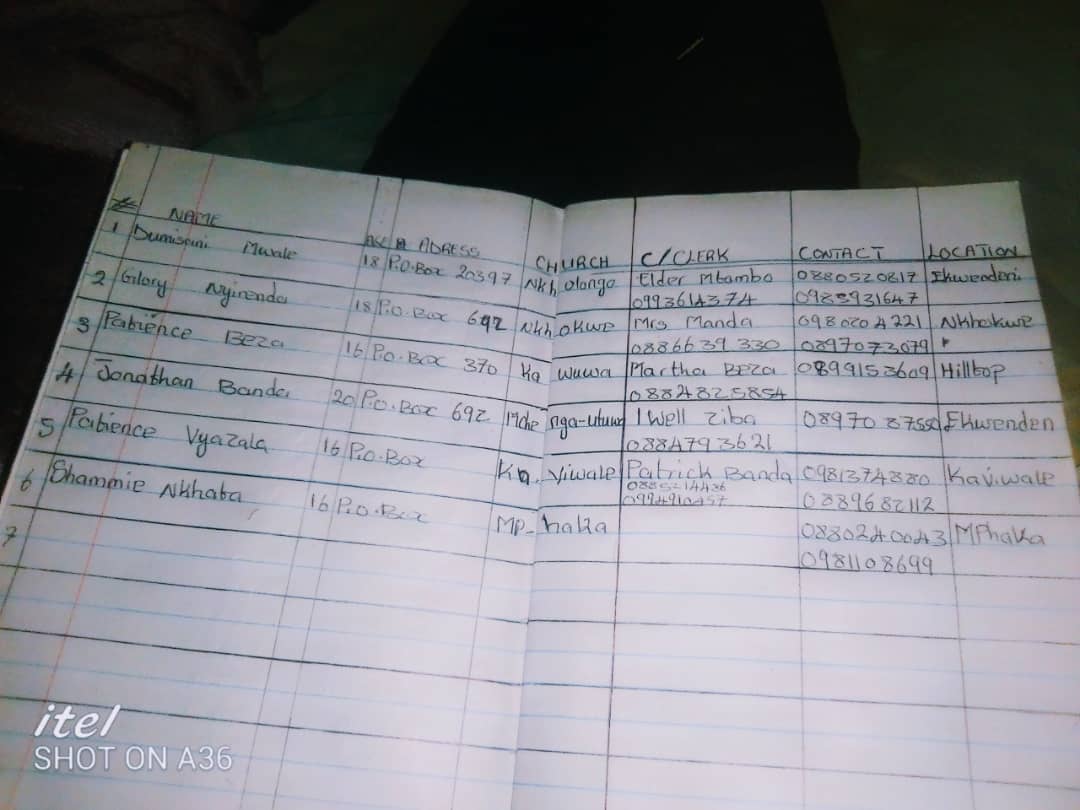 # NAME AGE ADRESS CHURCH C/CLERK CONTACT LOCATION
1 Dumisani Mwale 18 P.O.Box 20397 Nkholongo Elder Mtambo 0880520817 Ekwendeni
0993614374 0988931647
2 Glory Nyirenda 18 P.O.Box 692 Nkhokwe Mrs Manda 0980204221 Nkhokwe
0886639330 0897073079
3 Patience BEZA 16 P.O.Box 370 Kawuwa Martha BEZA 0899153609 Hilltop
0884825854
4 Jonathan Banda 20 P.O.Box 692 Mchenga-utuwa 1Well Ziba Ekwenden
0884793621
5 Patience Vyazala 16 P.O.Box Ka.Viwale Patrick Banda 0981374880 Kaviwale
0885214436
0994910457 0889682112
6 Shammie Nkhata 16 P.O.Box MP-haka 0880240043 MPhaka
0981108699
7
itel
SHOT ON A36